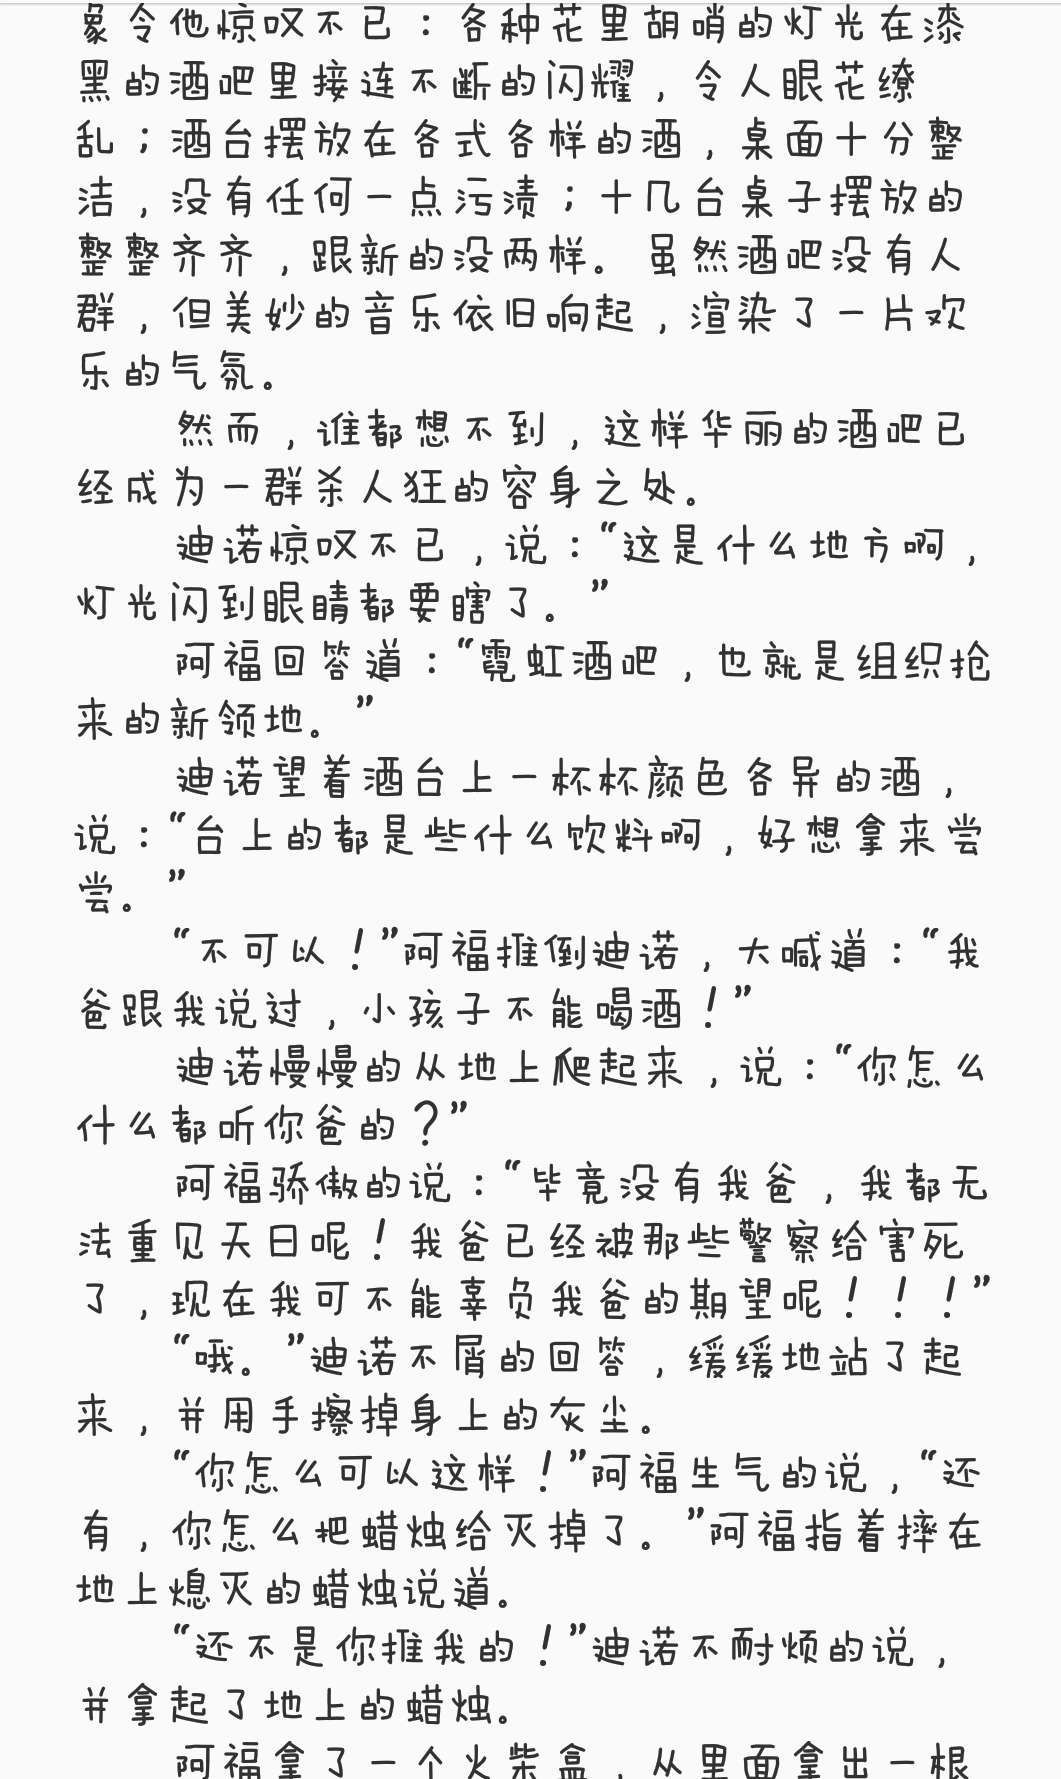 象令他惊叹不已：各种花里胡哨的灯光在漆
黑的酒吧里接连不断的闪耀，令人眼花缭
乱；酒台摆放在各式各样的酒，桌面十分整
洁，没有任何一点污渍；十几台桌子摆放的
整整齐齐，跟新的没两样。虽然酒吧没有人
群，但美妙的音乐依旧响起，渲染了一片欢
乐的气氛。
然而，谁都想不到，这样华丽的酒吧已
经成为一群杀人狂的容身之处。
迪诺惊叹不已，说：“这是什么地方啊，
灯光闪到眼睛都要瞎了。”
阿福回答道：“霓虹酒吧，也就是组织抢
来的新领地。”
迪诺望着酒台上一杯杯颜色各异的酒，
说：“台上的都是些什么饮料啊，好想拿来尝
尝。”
“不可以！”阿福推倒迪诺，大喊道：“我
爸跟我说过，小孩子不能喝酒！”
迪诺慢慢的从地上爬起来，说：“你怎么
什么都听你爸的？”
阿福骄傲的说：“毕竟没有我爸，我都无
法重见天日呢！我爸已经被那些警察给害死
了，现在我可不能辜负我爸的期望呢！！！”
“哦。”迪诺不屑的回答，缓缓地站了起
来，并用手擦掉身上的灰尘。
“你怎么可以这样！”阿福生气的说，“还
有，你怎么把蜡烛给灭掉了。”阿福指着摔在
地上熄灭的蜡烛说道。
“还不是你推我的！”迪诺不耐烦的说，
并拿起了地上的蜡烛。
阿福拿了一个火柴盒，从里面拿出一根